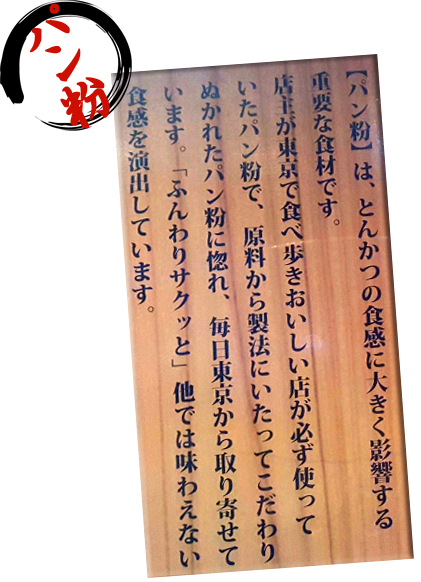 パン粉
【パン粉】は、とんかつの食感に大きく影響する
重要な食材です。
店主が東京で食べ歩きおいしい店が必ず使って
いたパン粉で、原料から製法にいたってこだわり
ぬかれたパン粉に惚れ、毎日東京から取り寄せて
います。「ふんわりサクッと」他では味わえない
食感を演出しています。